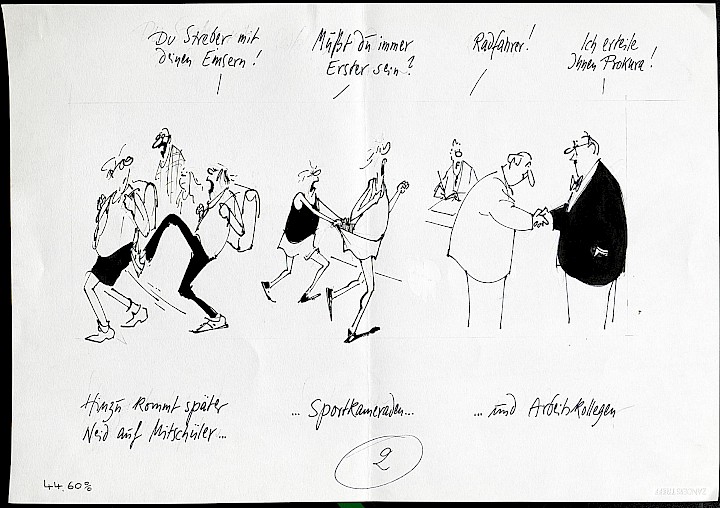 Du Streber mit
deinen Einsern!
Müßt du immer
Erster sein?
Radfahrer!
Ich erteile
Ihnen Prokura!
Hinzu kommt später
Neid auf Mitschüler...
... Sportkameraden...
... und Arbeitskollegen
2
44.60%